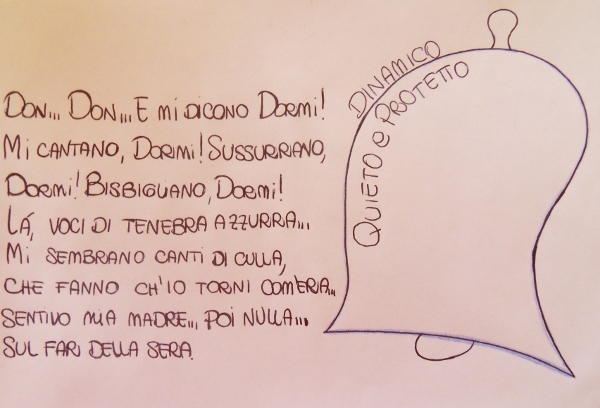 Don... Don... E mi dicono Dormi!
Mi cantano, Dormi! Sussurrano,
Dormi! Bisbigliano, Dormi!
Là, voci di tenebra azzurra...
Mi sembrano canti di culla,
che fanno ch'io torni com'era...
sentivo mia madre... poi nulla...
sul far della sera.
DINAMICO
QUIETO e PROTETTO